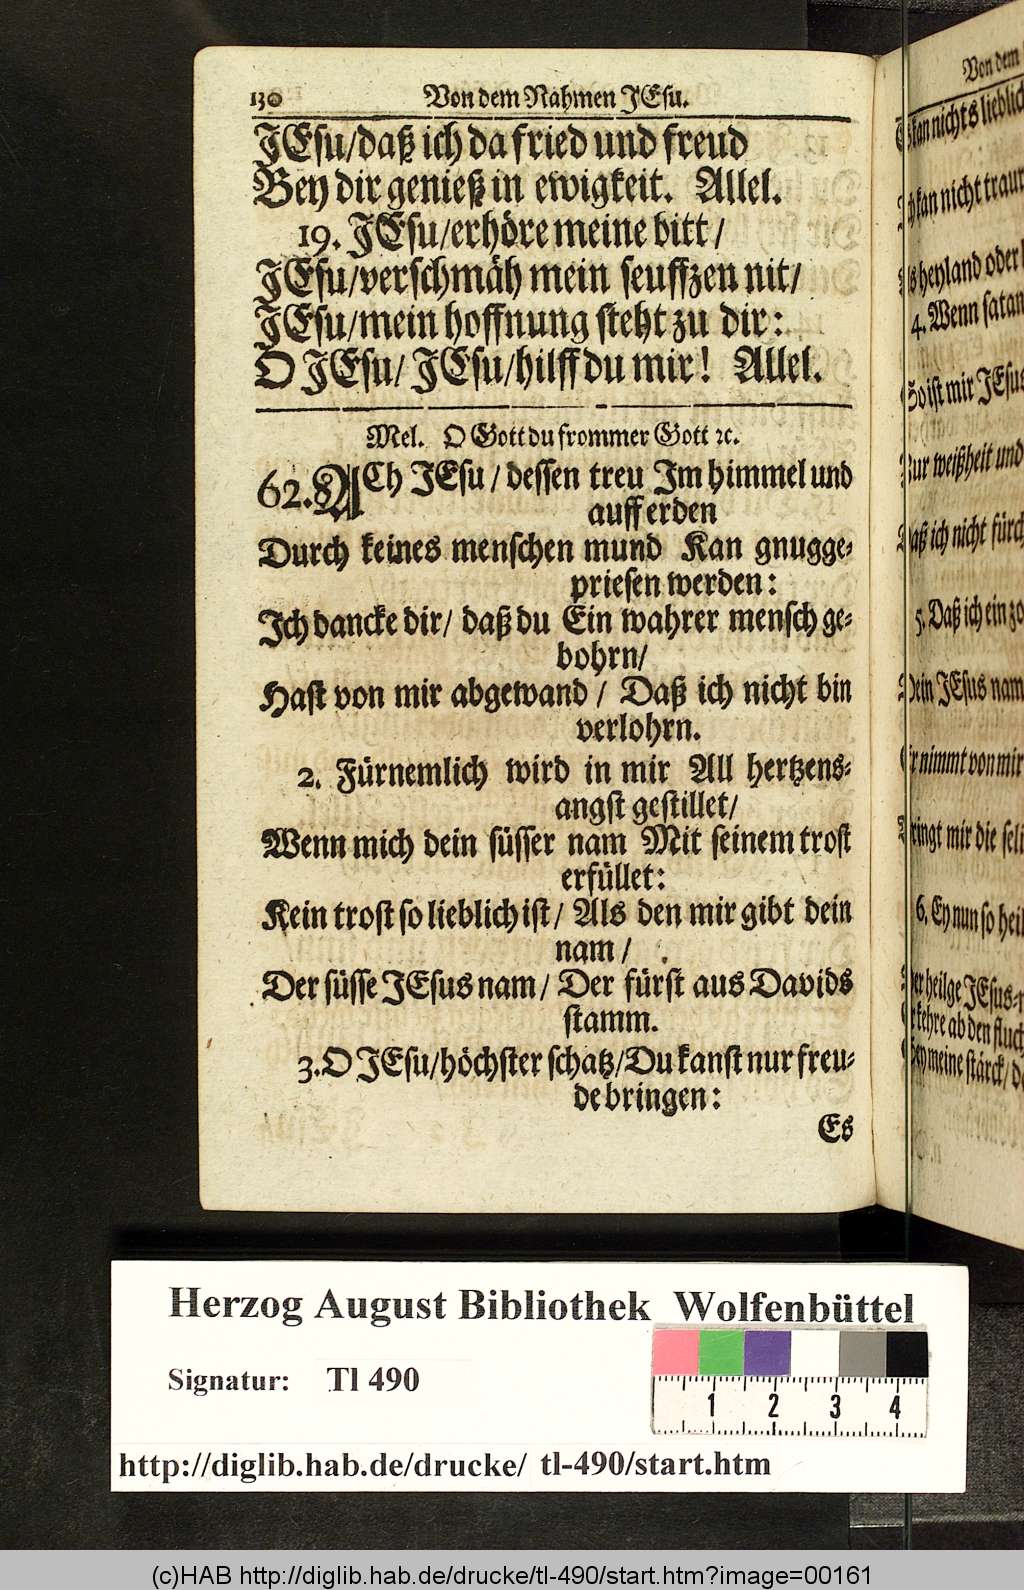 130 Von dem Nahmen JEsu.
JEsu/daß ich da fried und freud
Bey dir genieß in ewigkeit. Allel.
19. JEsu/erhöre meine bitt/
JEsu/verschmäh mein seuffzen nit/
JEsu/mein hoffnung steht zu dir:
O JEsu/ JEsu/hilff du mir! Allel.
Mel. O Gott du frommer Gott ꝛc.
62. ACh JEsu / dessen treu Im himmel und
auff erden
Durch keines menschen mund Kan gnug ge⸗
priesen werden:
Ich dancke dir/ daß du Ein wahrer mensch ge⸗
bohrn/
Hast von mir abgewand / Daß ich nicht bin
verlohrn.
2. Fürnemlich wird in mir All hertzens⸗
angst gestillet/
Wenn mich dein süsser nam Mit seinem trost
erfüllet:
Kein trost so lieblich ist/ Als den mir gibt dein
nam /
Der süsse JEsus nam/ Der fürst aus Davids
stamm.
3. O JEsu/höchster schatz/Du kanst nur freu⸗
de bringen:
Es
Von dem
kan nichts lieblich
kan nicht traur
heyland oder
4. Wenn satan
So ist mir JEsus
Nur weißheit und
Daß ich nicht fürch
5. Daß ich ein zo
Dein JEsus nam
Er nimmt von mir
Bringt mir die seli
6. Ey nun so heil
Der heilge JEsus⸗
kehre ab den fluch
Sey meine stärck/
Herzog August Bibliothek Wolfenbüttel
Signatur: Tl 490
1 2 3 4
http://diglib.hab.de/drucke/ tl-490/start.htm
(c)HAB http://diglib.hab.de/drucke/tl-490/start.htm?image=00161